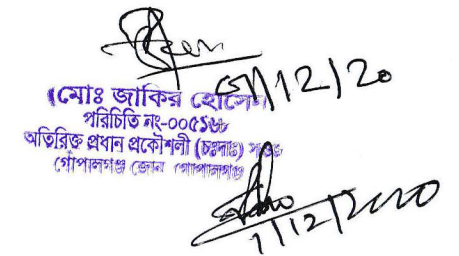 ০১/12/20
(মোঃ জাকির হোসেন)
পরিচিতি নং-০০৫১৬৮
অতিরিক্ত প্রধান প্রকৌশলী (চঃদাঃ)
গোপালগঞ্জ জোন গোপালগঞ্জ
1/12/2020